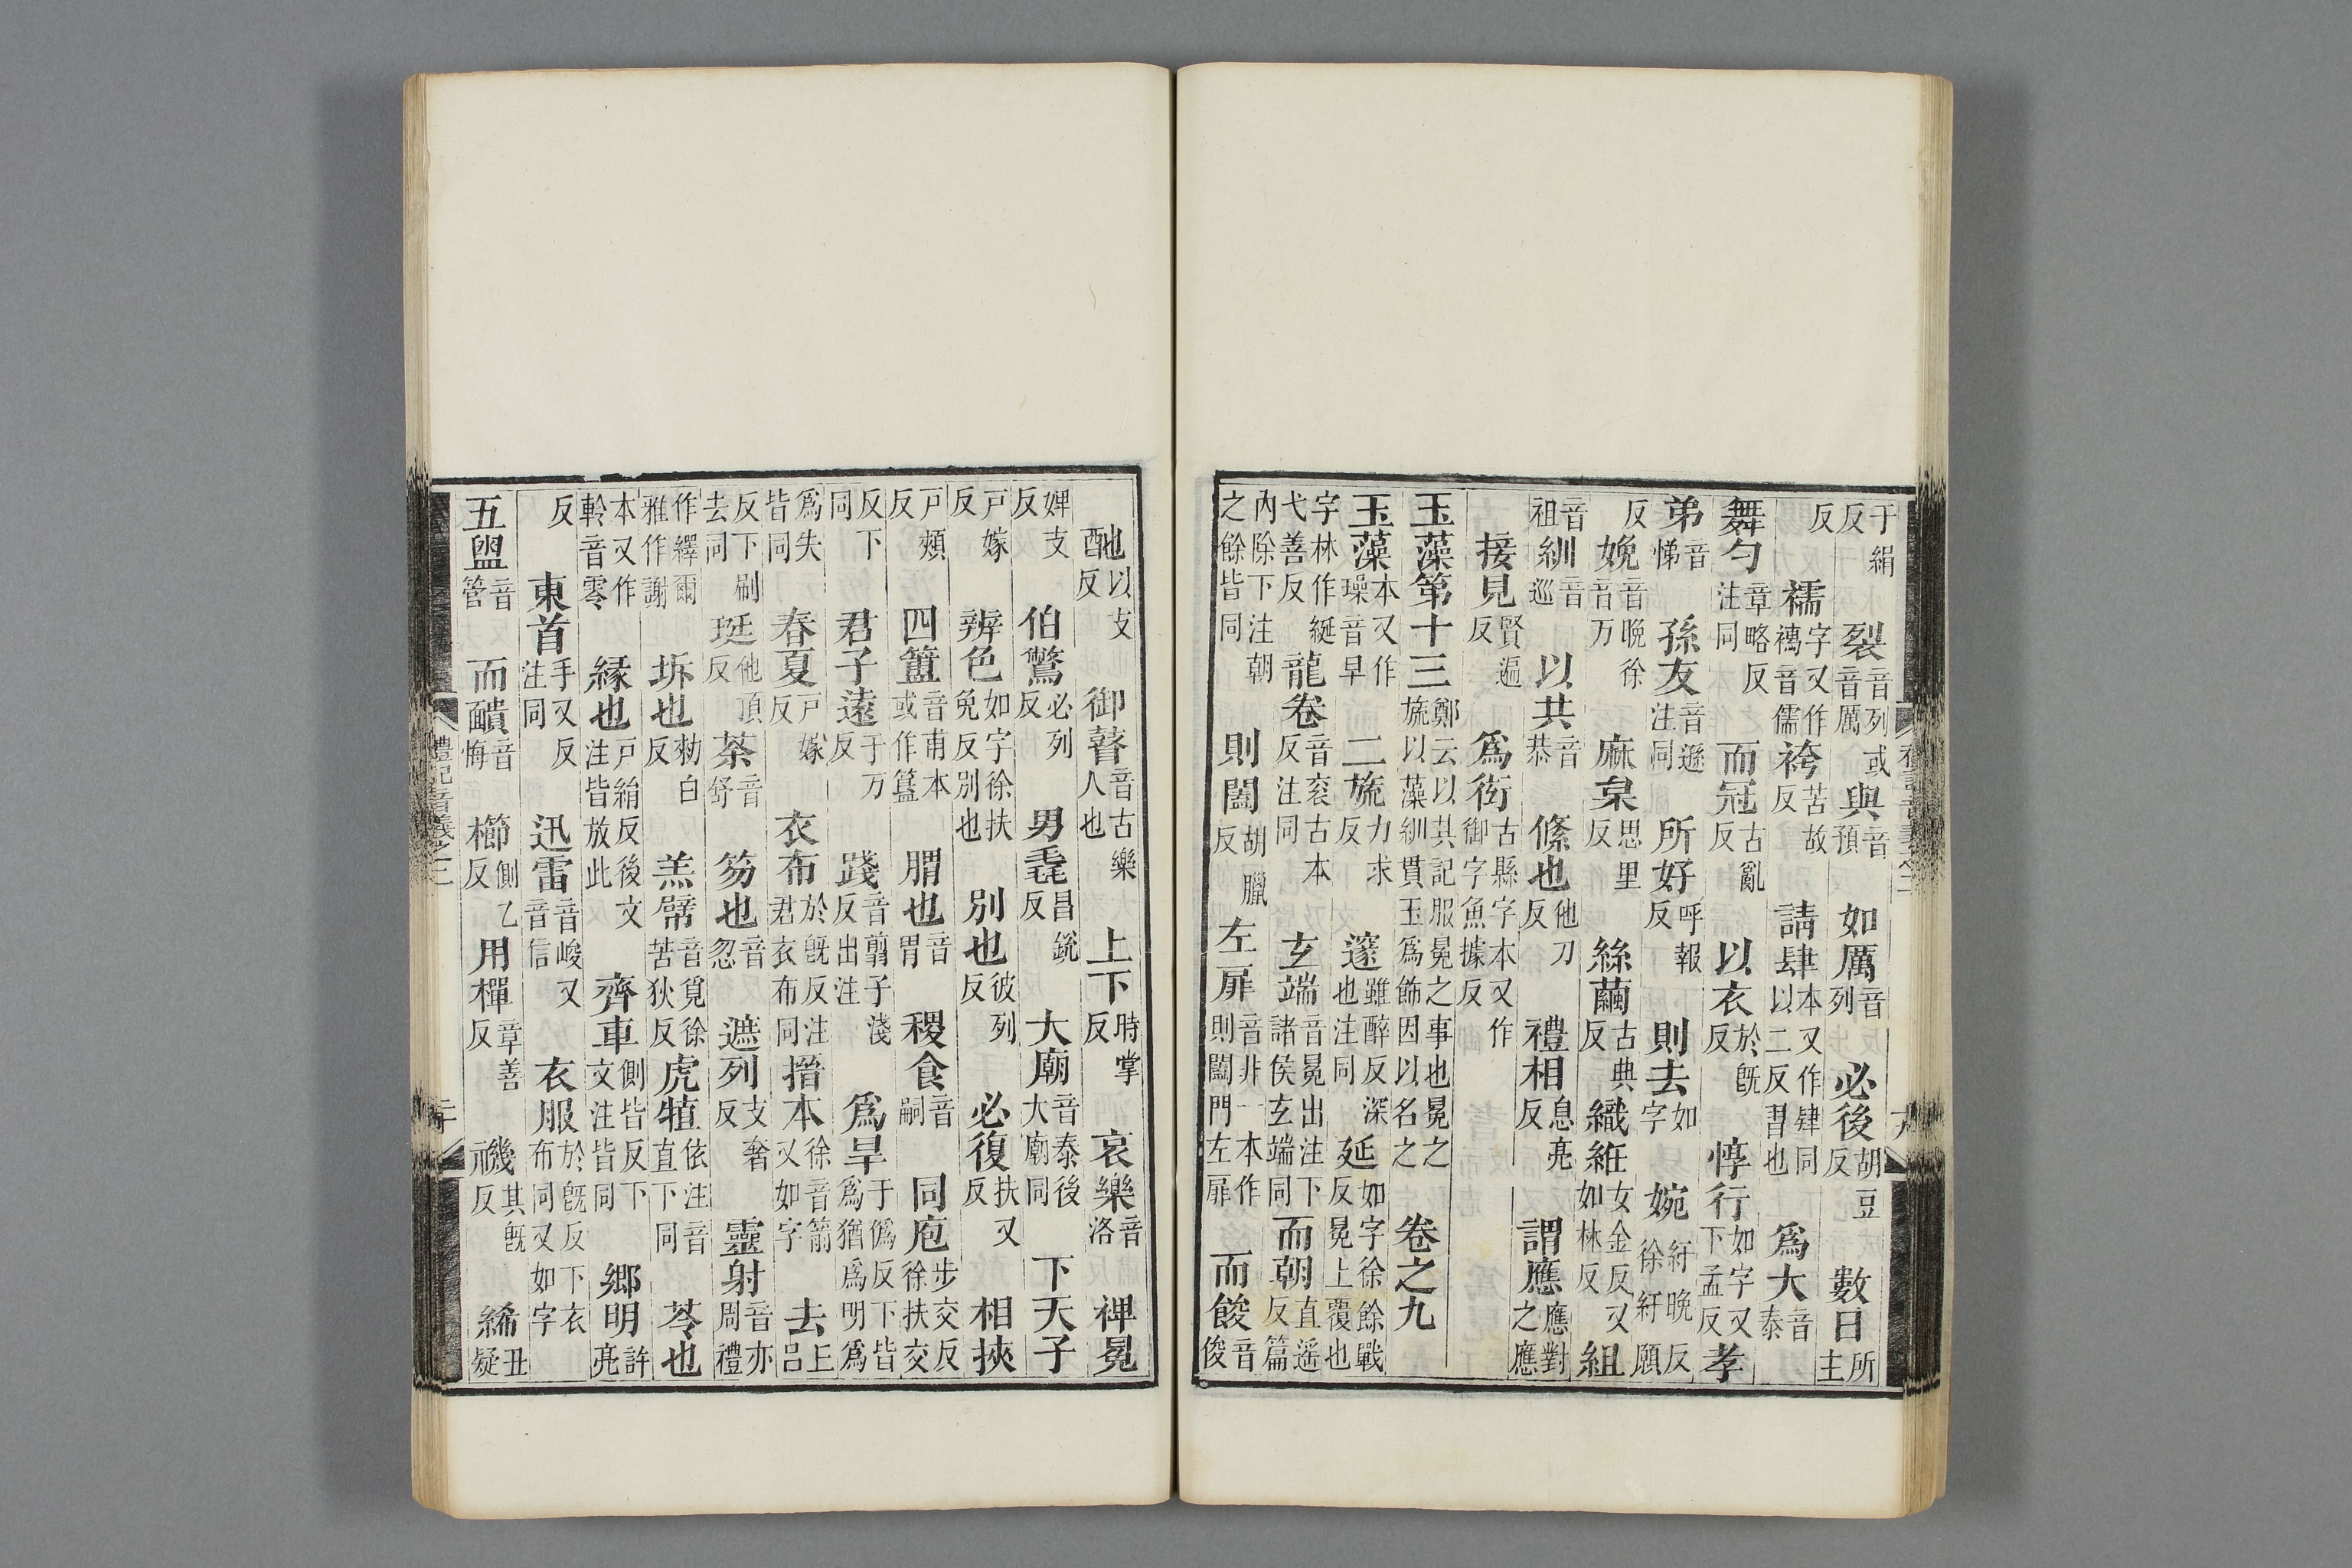 于絹反裂音列或音厲與音預如厲音列必後胡豆反數日所主
反襦字又作𥜗音儒袴苦故反請肆本又作肄同以二反習也爲大音泰
舞勺章略反注同而冠古亂反以衣於旣反惇行如字又下孟反孝
弟音悌孫友音遜注同所好呼報反則去如字婉紆晚反徐紆願
反娩音晚徐音万麻枲思里反絲繭古典反織紝女金反又如林反組
音祖紃音巡以共音恭絛也他刀反禮相息亮反謂應應對之應
接見賢遍反爲衒古縣字本又作御字魚據反
玉藻第十三鄭云以其記服冕之事也冕之旒以藻紃貫玉爲飾因以名之卷之九
玉藻本又作璪音早二旒力求反邃雖醉反深也注同延如字徐餘戰反冕上覆也
字林作綖弋善反龍卷音衮古本反注同玄端音冕出注下諸侯玄端同而朝直遥反篇
內除下注朝之餘皆同則闔胡臘反左扉音非一本作則闔門左扉而餕音俊
酏以支反御瞽音古樂人也上下時掌反哀樂音洛裨冕
婢支反伯鷩必列反男毳昌銳反大廟音泰後大廟同下天子
戸嫁反辨色如字徐扶免反別也別也彼列反必復扶又反相挾
戸頰反四簠音甫本或作簋也音胃稷食音嗣同庖步交反徐扶交
反下同君子遠于万反踐音翦子淺反出注爲旱于僞反下皆爲猶爲明爲
爲失皆同春夏戸嫁反衣布於旣反注君衣布同搢本徐音箭又如字去上呂
反下刷去同珽他頂反荼音舒笏也音忽遮列支奢反靈射音亦周禮
作繹爾雅作謝坼也勑白反羔幦音覓徐苦狄反虎犆依注音直下同苓也
本又作軨音零緣也戸絹反後文注皆放此齊車側皆反下文注皆同鄉明許亮
反東首手又反注同迅雷音峻又音信衣服於旣反下衣布同又如字
五盥音管而靧音悔櫛側乙反用樿章善反禨其旣反絺丑疑
禮記音義之二